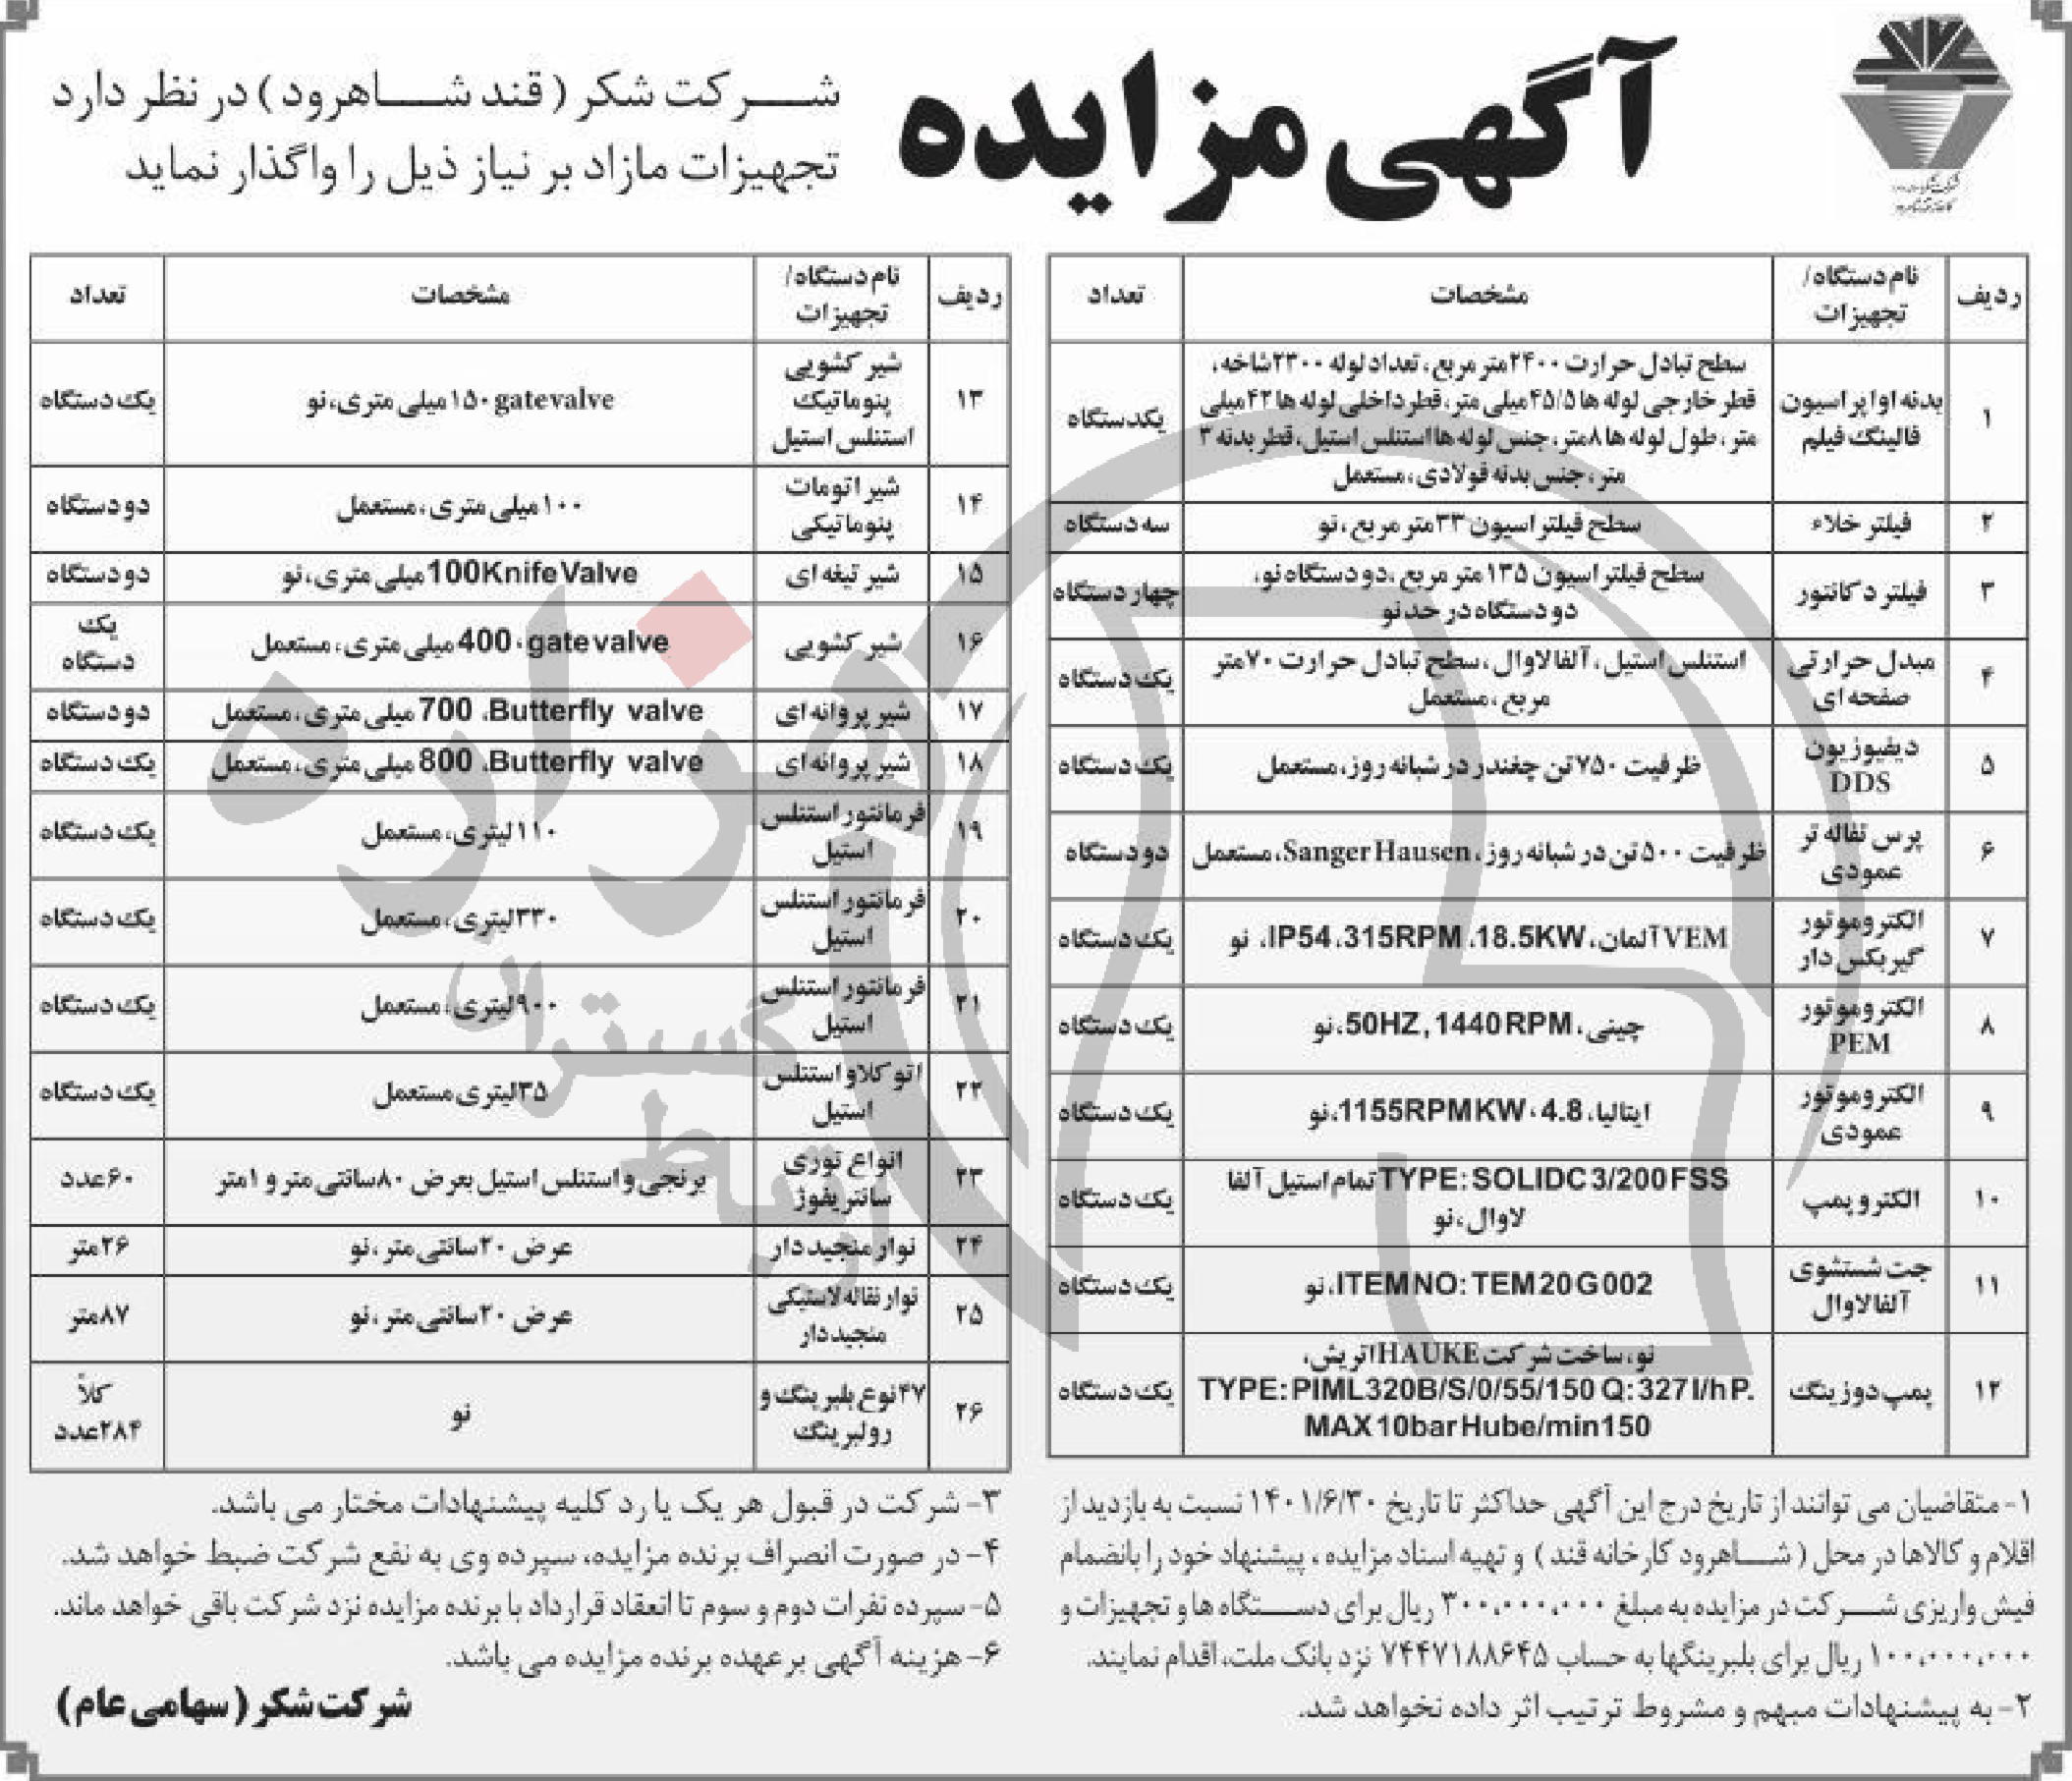 آگهی مزایده
شرکت شکر (قند شاهرود) در نظر دارد
تجهیزات مازاد بر نیاز ذیل را واگذار نماید
ردیف
نام دستگاه/
تجهیزات
مشخصات
تعداد
۱
بدنه اواپراسیون
فالینگ فیلم
سطح تبادل حرارت ۲۴۰۰متر مربع، تعداد لوله ۲۳۰۰شاخه،
قطر خارجی لوله ها ۴۵/۵میلی متر، قطر داخلی لوله ها ۴۲میلی
متر، طول لوله ها ۸متر، جنس لوله ها استنلس استیل، قطر بدنه ۳
متر، جنس بدنه فولادی، مستعمل
یکدستگاه
۲
فیلتر خلاء
سطح فیلتراسیون ۳۳متر مربع، نو
سه دستگاه
۳
فیلتر دکانتور
سطح فیلتراسیون ۱۳۵متر مربع، دو دستگاه نو،
دو دستگاه در حد نو
چهار دستگاه
۴
مبدل حرارتی
صفحه ای
استنلس استیل، آلفالاوال، سطح تبادل حرارت ۷۰متر
مربع، مستعمل
یک دستگاه
۵
دیفیوزیون
DDS
ظرفیت ۷۵۰تن چغندر در شبانه روز، مستعمل
یک دستگاه
۶
پرس تفاله تر
عمودی
ظرفیت ۵۰۰تن در شبانه روز، Sanger Hausen، مستعمل
دو دستگاه
۷
الکتروموتور
گیربکس دار
VEM آلمان، IP54 ،315RPM ،18.5KW، نو
یک دستگاه
۸
الکتروموتور
PEM
چینی، 50HZ, 1440 RPM، نو
یک دستگاه
۹
الکتروموتور
عمودی
ایتالیا، 1155RPMKW ، 4.8، نو
یک دستگاه
۱۰
الکترو پمپ
TYPE: SOLIDC 3/200 FSS تمام استیل آلفا
لاوال، نو
یک دستگاه
۱۱
جت شستشوی
آلفالاوال
ITEMNO: TEM 20 G 002، نو
یک دستگاه
۱۲
پمپ دوزینگ
نو، ساخت شرکت HAUKE اتریش،
TYPE: PIML320B/S/0/55/150 Q: 327 l/h P.
MAX 10bar Hube/min 150
یک دستگاه
ردیف
نام دستگاه/
تجهیزات
مشخصات
تعداد
۱۳
شیر کشویی
پنوماتیک
استنلس استیل
gate valve ۱۵۰ میلی متری، نو
یک دستگاه
۱۴
شیر اتومات
پنوماتیکی
۱۰۰میلی متری، مستعمل
دو دستگاه
۱۵
شیر تیغه ای
100Knife Valve میلی متری، نو
دو دستگاه
۱۶
شیر کشویی
gate valve ،400 میلی متری، مستعمل
یک
دستگاه
۱۷
شیر پروانه ای
Butterfly valve، 700 میلی متری، مستعمل
دو دستگاه
۱۸
شیر پروانه ای
Butterfly valve، 800 میلی متری، مستعمل
یک دستگاه
۱۹
فرمانتور استنلس
استیل
۱۱۰لیتری، مستعمل
یک دستگاه
۲۰
فرمانتور استنلس
استیل
۳۳۰لیتری، مستعمل
یک دستگاه
۲۱
فرمانتور استنلس
استیل
۹۰۰لیتری، مستعمل
یک دستگاه
۲۲
اتوکلاو استنلس
استیل
۳۵لیتری مستعمل
یک دستگاه
۲۳
انواع توری
سانتریفوژ
برنجی و استنلس استیل بعرض ۸۰سانتی متر و ۱متر
۶۰عدد
۲۴
نوار منجید دار
عرض ۲۰سانتی متر، نو
۲۶متر
۲۵
نوار نقاله لاستیکی
منجید دار
عرض ۲۰سانتی متر، نو
۸۷متر
۲۶
۴۷نوع بلبرینگ و
رولبرینگ
نو
کلاً
۲۸۴عدد
۱- متقاضیان می توانند از تاریخ درج این آگهی حداکثر تا تاریخ ۱۴۰۱/۶/۳۰ نسبت به بازدید از
اقلام و کالاها در محل (شاهرود کارخانه قند) و تهیه اسناد مزایده، پیشنهاد خود را بانضمام
فیش واریزی شرکت در مزایده به مبلغ ۳۰۰،۰۰۰،۰۰۰ ریال برای دستگاه ها و تجهیزات و
۱۰۰،۰۰۰،۰۰۰ ریال برای بلبرینگها به حساب ۷۴۴۷۱۸۸۶۴۵ نزد بانک ملت، اقدام نمایند.
۲- به پیشنهادات مبهم و مشروط ترتیب اثر داده نخواهد شد.
۳- شرکت در قبول هر یک یا رد کلیه پیشنهادات مختار می باشد.
۴- در صورت انصراف برنده مزایده، سپرده وی به نفع شرکت ضبط خواهد شد.
۵- سپرده نفرات دوم و سوم تا انعقاد قرارداد با برنده مزایده نزد شرکت باقی خواهد ماند.
۶- هزینه آگهی بر عهده برنده مزایده می باشد.
شرکت شکر (سهامی عام)
هزاره
گستران